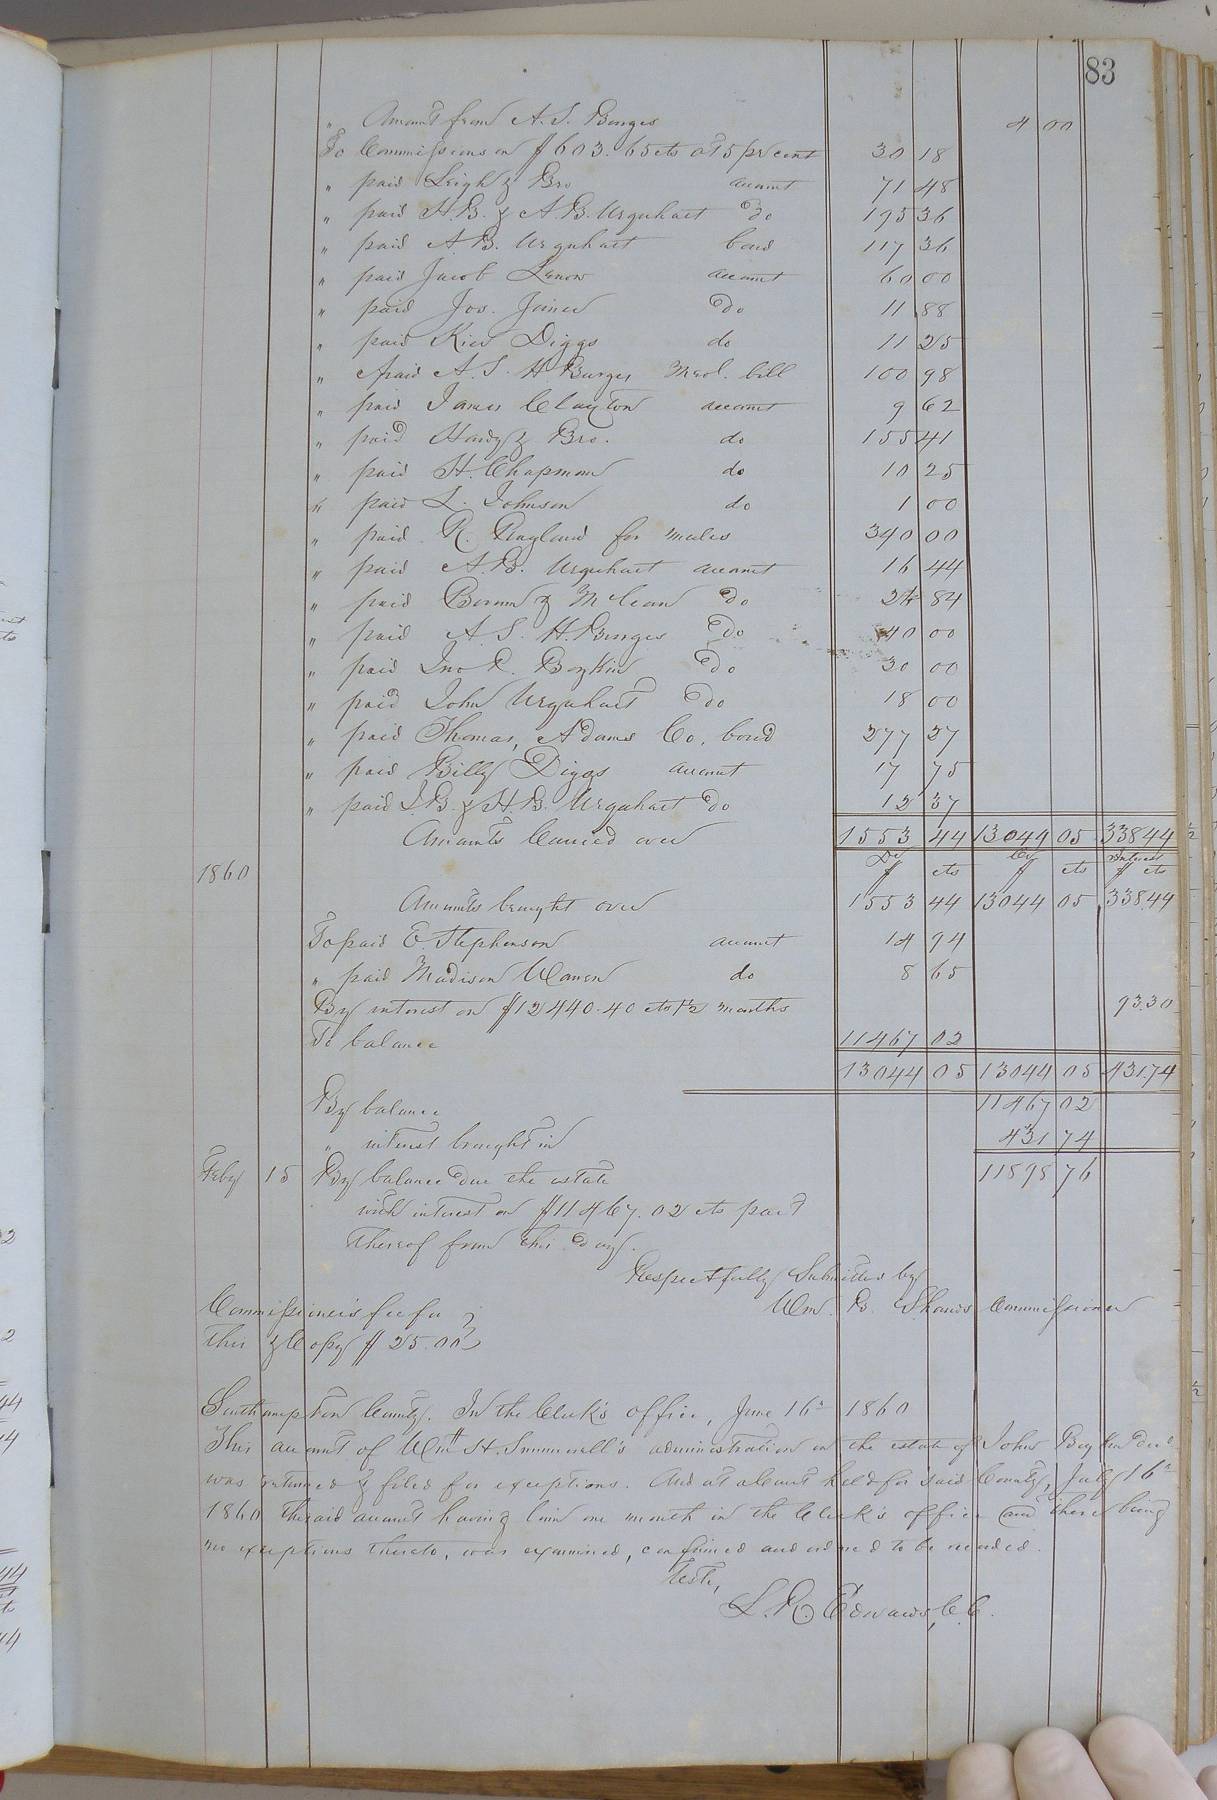 83
" Amount from A. S. Burges 4 00
To Commissions on $603.65 cts at 5 pr cent 30 18
" paid Leigh & Bro account 71 48
" paid H. B. & A. B. Urquhart Do 195 36
" paid A. B. Urquhart bond 117 36
" paid Jacob account 60 00
" paid Jos. Joiner Do 11 88
" paid Diggs do 11 25
" paid A. S. H. Burges Med. bill 100 98
" paid James Clayton account 9 62
" paid & Bro. do 155 41
" paid H. Chapman do 10 25
" paid L. Johnson do 1 00
" paid R. Ragland for mules 340 00
" paid A. B. Urquhart account 16 44
" paid & McLean Do 84
" paid A. S. H. Burges Do 40 00
" paid Jno R. Boykin Do 30 00
" paid John Urquhart Do 18 00
" paid Thomas, Adams Co. bond 277 27
" paid Billy Diggs account 17 75
" paid J. B. & H. B. Urquhart Do 12 37
Amounts Carried over 1553 44 13044 05 338 44
Dr Cr Interest
1860 $ cts $ cts $ cts
Amounts brought over 1553 44 13044 05 338.44
To paid E. Stephenson account 14 94
" paid Madison Do 8 65
By interest on $12440.40 cts 1½ months 93.30
To balance 11467 02
13044 05 13044 05 431.74
By balance 11467 02
" interest brought in 431 74
Feby 15 By balance due the estate 11898 76
with interest on $11467.02 cts part
thereof from this day.
Respectfully Submitted by
Wm. B. Shands Commissioner
Commissioner's fee for
this & Copy $25.00
Southampton County. In the Clerk's office, June 16th 1860
This account of Wm H. Summerell's administration on the estate of John Boykin decd
was returned & filed for exceptions. And at a Court held for said County, July 16th
1860 the said account having lain one month in the Clerk's office and there being
no exceptions thereto, was examined, confirmed and ordered to be recorded.
Teste,
L. R. Edwards, C. C.